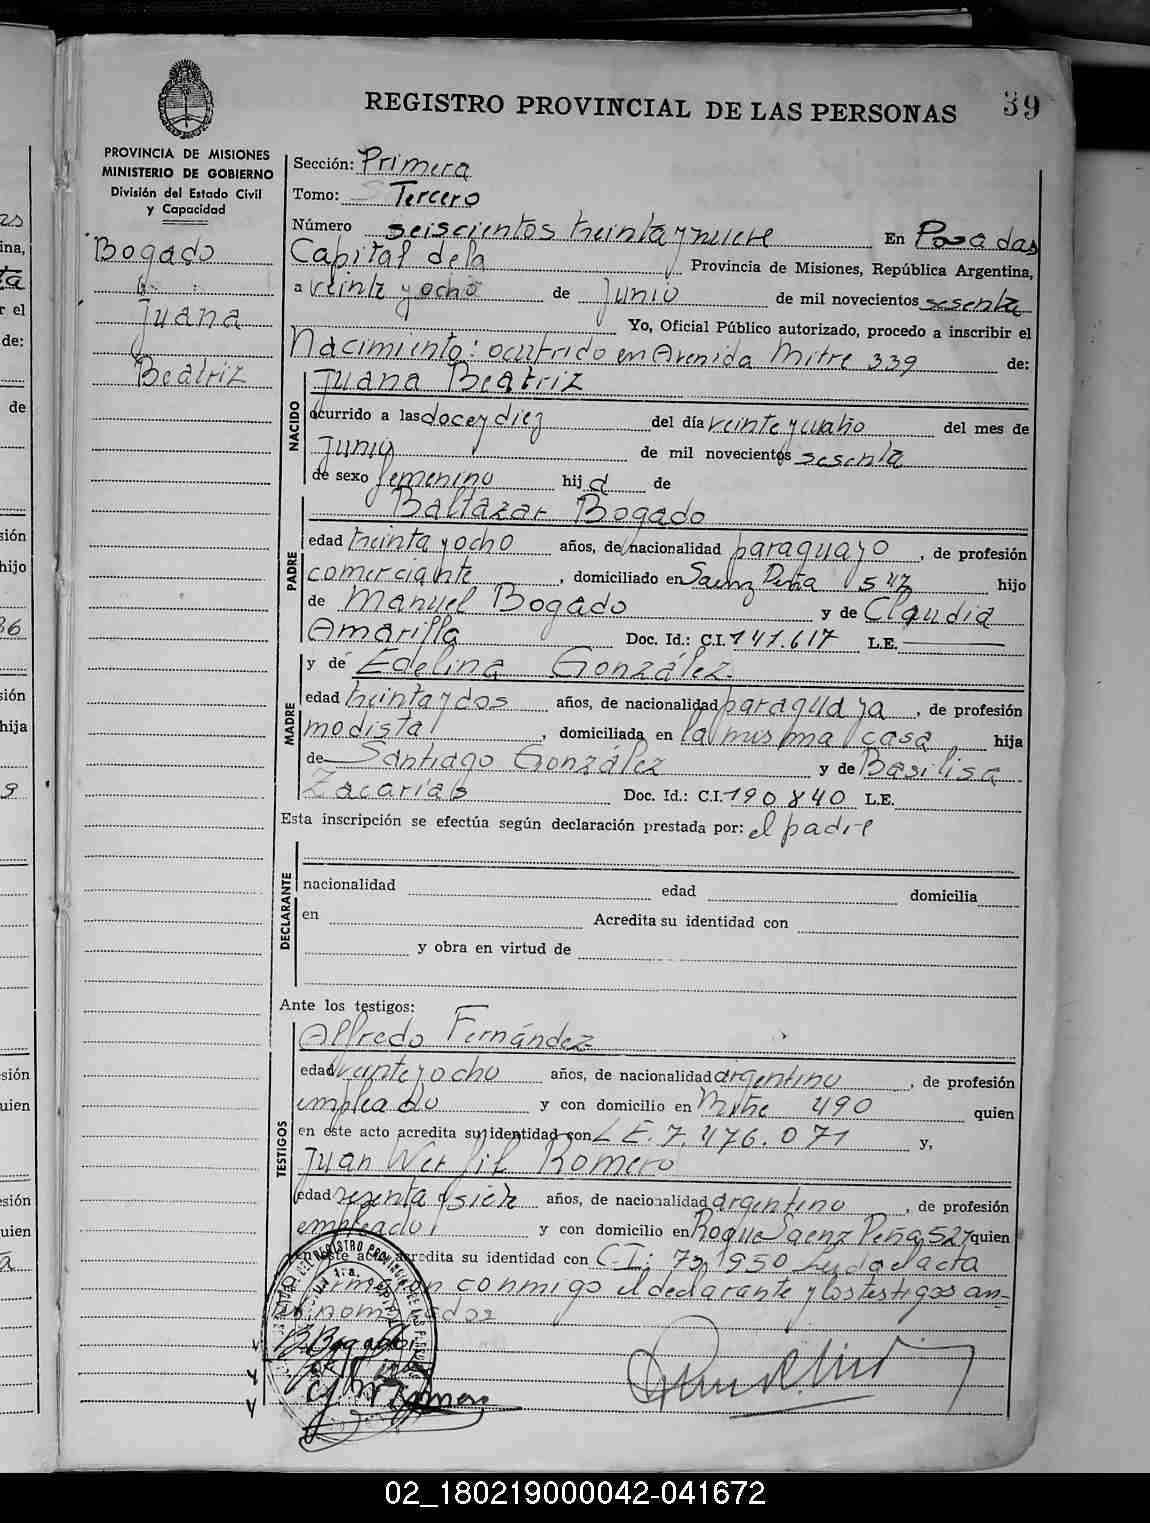 REGISTRO PROVINCIAL DE LAS PERSONAS 39
PROVINCIA DE MISIONES
MINISTERIO DE GOBIERNO
División del Estado Civil
y Capacidad
Bogado
Juana
Beatriz
Sección: Primera
Tomo: Tercero
Número seiscientos treinta y nueve En Posadas
Capital de la Provincia de Misiones, República Argentina,
a veinte y ocho de Junio de mil novecientos sesenta
Yo, Oficial Público autorizado, procedo a inscribir el
Nacimiento: ocurrido en Avenida Mitre 339 de:
NACIDO
Juana Beatriz
ocurrido a las doce y diez del día veinte y cuatro del mes de
Junio de mil novecientos sesenta
de sexo femenino hij a de
PADRE
Baltazar Bogado
edad treinta y ocho años, de nacionalidad paraguayo, de profesión
comerciante, domiciliado en Saenz Peña 547 hijo
de Manuel Bogado y de Claudia
Amarilla Doc. Id.: C.I. 141.617 L.E.
MADRE
y de Edelina González
edad treinta y dos años, de nacionalidad paraguaya, de profesión
modista, domiciliada en la misma casa hija
de Santiago González y de Basilisa
Zacarias Doc. Id.: C.I. 190840 L.E.
Esta inscripción se efectúa según declaración prestada por: el padre
DECLARANTE
nacionalidad edad domicilia
en Acredita su identidad con
y obra en virtud de
Ante los testigos:
TESTIGOS
Alfredo Fernández
edad veinte y ocho años, de nacionalidad argentino, de profesión
empleado y con domicilio en Mitre 490 quien
en este acto acredita su identidad con L E. 7.476.071 y,
Juan Romero
edad sesenta y siete años, de nacionalidad argentino, de profesión
empleado y con domicilio en Roque Saenz Peña 527 quien
en este acto acredita su identidad con C.I: 73.950 Leida el acta
firman conmigo el declarante y los testigos an-
tes nombrados
B Bogado
02_180219000042-041672